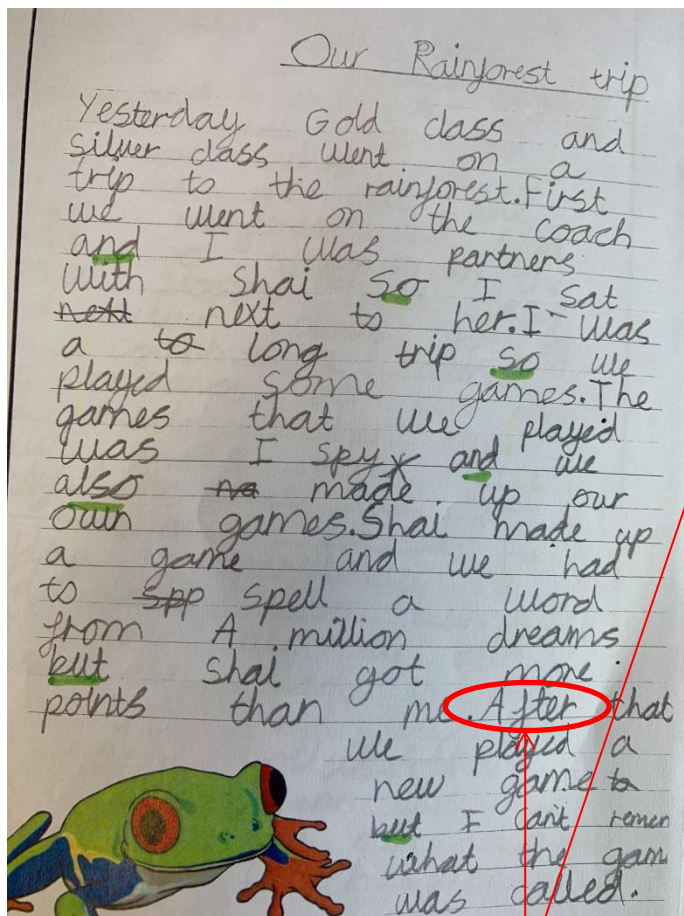 Our Rainforest trip
Yesterday Gold class and
silver class went on a
trip to the rainforest.First
we went on the coach
and I was partners
with Shai so I sat
next to her.I was
a to long trip so we
played some games.The
games that we played
was I spy and we
also made up our
own games.Shai made up
a game and we had
to spp spell a word
from A million dreams
but Shai got more
points than me.After that
we played a
new game to
but I can't remem
what the gam
was called.